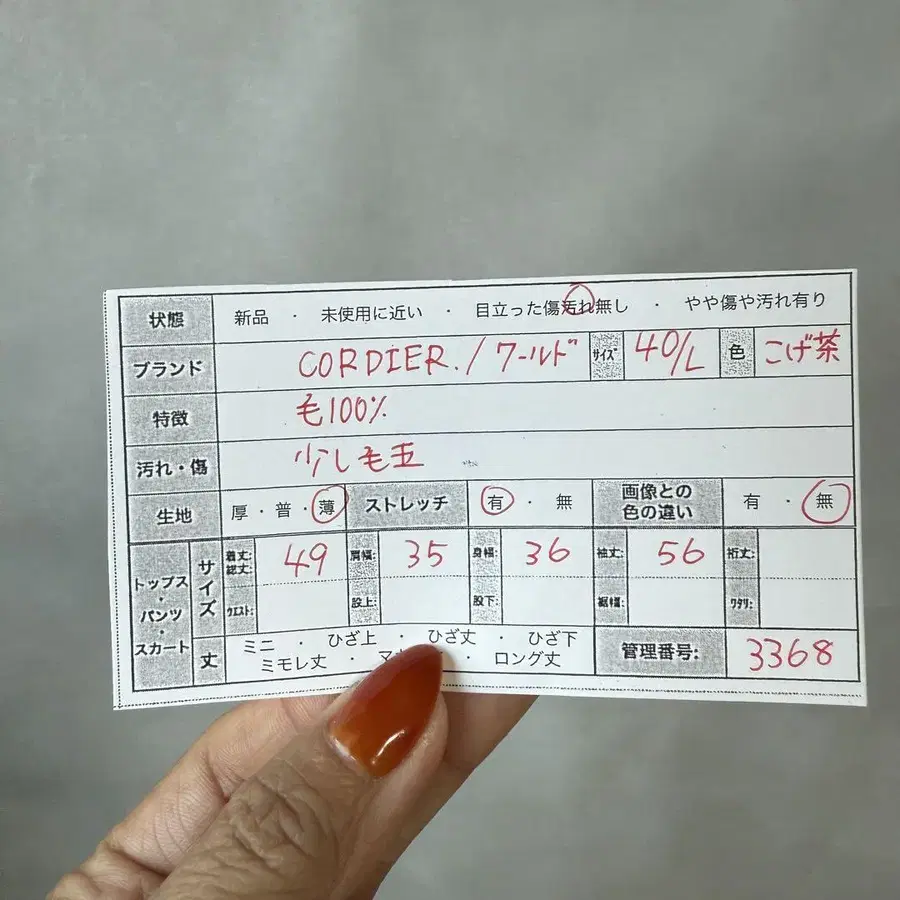 状態 新品 ・ 未使用に近い ・ 目立った傷汚れ無し ・ やや傷や汚れ有り
ブランド CORDIER./ワールド サイズ 40/L 色 こげ茶
特徴 毛100%
汚れ・傷 少し毛玉
生地 厚・普・薄 ストレッチ 有・無 画像との色の違い 有・無
トップス・パンツ・スカート サイズ 着丈:総丈: 49 肩幅: 35 身幅: 36 袖丈: 56 裄丈:
ウエスト: 股上: 股下: 裾幅: ワタリ:
丈 ミニ ・ ひざ上 ・ ひざ丈 ・ ひざ下
ミモレ丈 ・ ・ ロング丈 管理番号: 3368